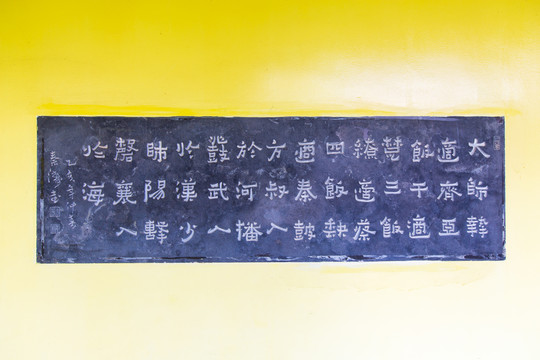 大師摯
適齊亞
飯干適
楚三飯
繚適蔡
四飯缺
適秦鼓
方叔入
於河播
鼗武入
於漢少
師陽擊
磬襄入
於海
乙亥年